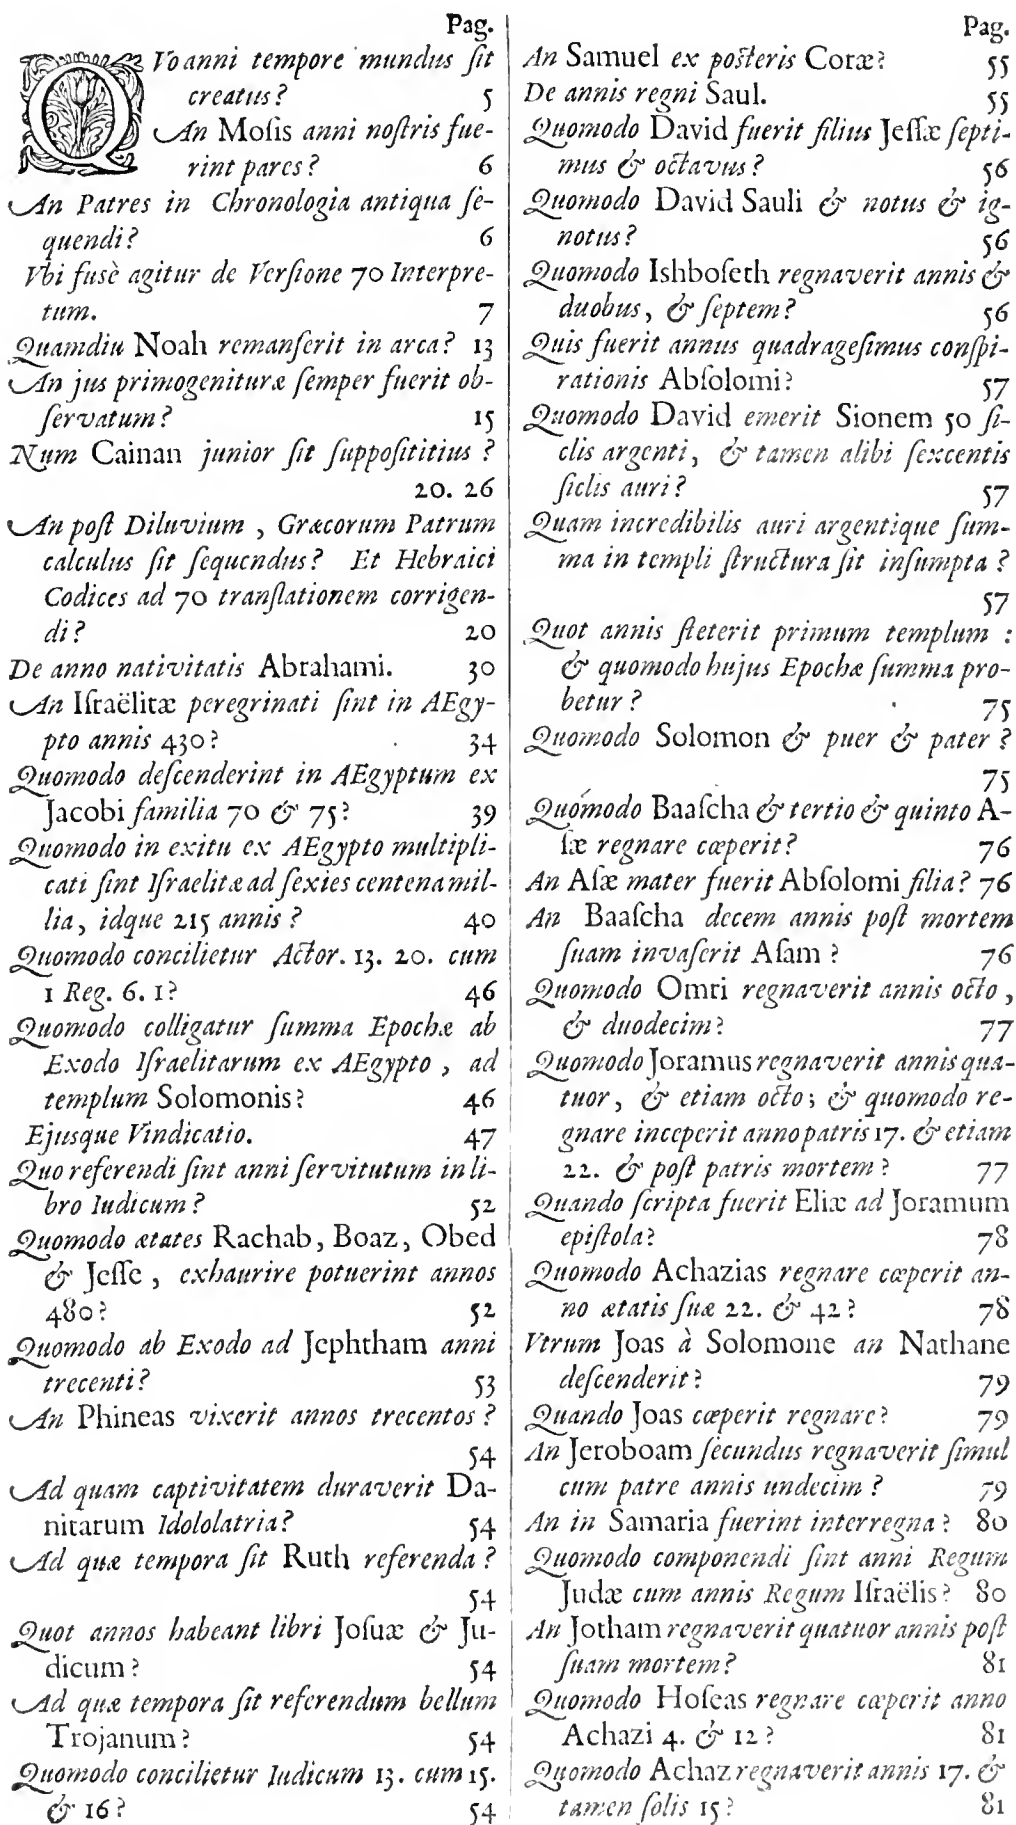 Pag.
QVo anni tempore mundus ſit
creatus? 5
An Moſis anni noſtris fue-
rint pares? 6
An Patres in Chronologia antiqua ſe-
quendi? 6
Vbi fusè agitur de Verſione 70 Interpre-
tum. 7
Quamdiu Noah remanſerit in arca? 13
An jus primogenituræ ſemper fuerit ob-
ſervatum? 15
Num Cainan junior ſit ſuppoſititius ?
20. 26
An poſt Diluvium , Græcorum Patrum
calculus ſit ſequendus? Et Hebraici
Codices ad 70 tranſlationem corrigen-
di? 20
De anno nativitatis Abrahami. 30
An Iſraëlitæ peregrinati ſint in AEgy-
pto annis 430? 34
Quomodo deſcenderint in AEgyptum ex
Jacobi familia 70 & 75? 39
Quomodo in exitu ex AEgypto multipli-
cati ſint Iſraelitæ ad ſexies centena mil-
lia, idque 215 annis ? 40
Quomodo concilietur Actor. 13. 20. cum
1 Reg. 6. 1? 46
Quomodo colligatur ſumma Epochæ ab
Exodo Iſraelitarum ex AEgypto , ad
templum Solomonis? 46
Ejusque Vindicatio. 47
Quo referendi ſint anni ſervitutum in li-
bro Iudicum? 52
Quomodo ætates Rachab, Boaz, Obed
& Jeſſe , exhaurire potuerint annos
480? 52
Quomodo ab Exodo ad Jephtham anni
trecenti? 53
An Phineas vixerit annos trecentos ?
54
Ad quam captivitatem duraverit Da-
nitarum Idololatria? 54
Ad quæ tempora ſit Ruth referenda ?
54
Quot annos habeant libri Joſuæ & Ju-
dicum? 54
Ad quæ tempora ſit referendum bellum
Trojanum? 54
Quomodo concilietur Iudicum 13. cum 15.
& 16? 54
Pag.
An Samuel ex poſteris Coræ? 55
De annis regni Saul. 55
Quomodo David fuerit filius Jeſſæ ſepti-
mus & octavus? 56
Quomodo David Sauli & notus & ig-
notus? 56
Quomodo Ishboſeth regnaverit annis &
duobus, & ſeptem? 56
Quis fuerit annus quadrageſimus conſpi-
rationis Abſolomi? 57
Quomodo David emerit Sionem 50 ſi-
clis argenti, & tamen alibi ſexcentis
ſiclis auri? 57
Quam incredibilis auri argentique ſum-
ma in templi ſtructura ſit inſumpta ?
57
Quot annis ſteterit primum templum :
& quomodo hujus Epochæ ſumma pro-
betur ? 75
Quomodo Solomon & puer & pater ?
75
Quomodo Baaſcha & tertio & quinto A-
ſæ regnare cœperit? 76
An Aſæ mater fuerit Abſolomi filia? 76
An Baaſcha decem annis poſt mortem
ſuam invaſerit Aſam ? 76
Quomodo Omri regnaverit annis octo ,
& duodecim? 77
Quomodo Joramus regnaverit annis qua-
tuor, & etiam octo; & quomodo re-
gnare inceperit anno patris 17. & etiam
22. & poſt patris mortem? 77
Quando ſcripta fuerit Eliæ ad Joramum
epiſtola? 78
Quomodo Achazias regnare cœperit an-
no ætatis ſuæ 22. & 42? 78
Vtrum Joas à Solomone an Nathane
deſcenderit? 79
Quando Joas cœperit regnare? 79
An Jeroboam ſecundus regnaverit ſimul
cum patre annis undecim ? 79
An in Samaria fuerint interregna? 80
Quomodo componendi ſint anni Regum
Judæ cum annis Regum Iſraëlis? 80
An Jotham regnaverit quatuor annis poſt
ſuam mortem? 81
Quomodo Hoſeas regnare cœperit anno
Achazi 4. & 12 ? 81
Quomodo Achaz regnaverit annis 17. &
tamen ſolis 15? 81